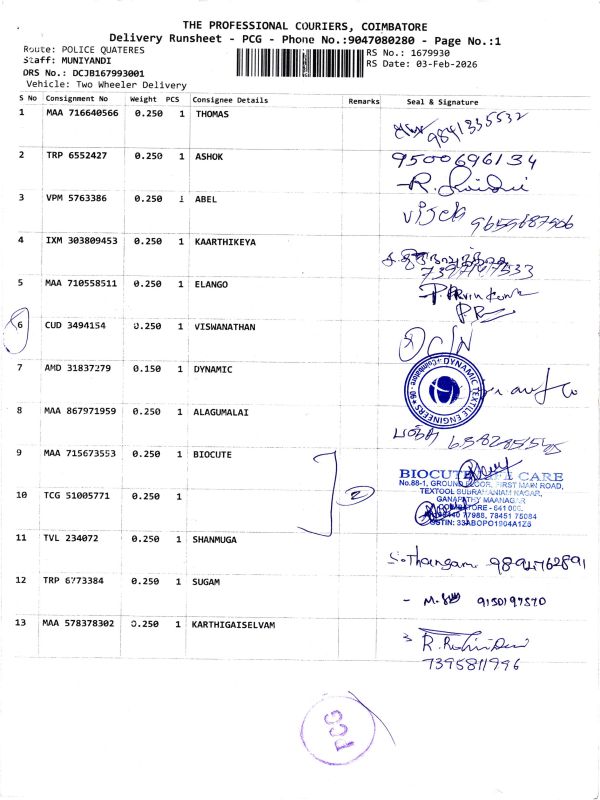 THE PROFESSIONAL COURIERS, COIMBATORE
Delivery Runsheet - PCG - Phone No.:9047080280 - Page No.:1
Route: POLICE QUATERES
RS No.: 1679930
Staff: MUNIYANDI
RS Date: 03-Feb-2026
DRS No.: DCJB167993001
Vehicle: Two Wheeler Delivery
S No Consignment No Weight PCS Consignee Details Remarks Seal & Signature
1 MAA 716640566 0.250 1 THOMAS 9841335532
2 TRP 6552427 0.250 1 ASHOK 9500696134
3 VPM 5763386 0.250 1 ABEL 9655687506
4 IXM 303809453 0.250 1 KAARTHIKEYA
5 MAA 710558511 0.250 1 ELANGO
6 CUD 3494154 0.250 1 VISWANATHAN
7 AMD 31837279 0.150 1 DYNAMIC
DYNAMIC TEXTILE ENGINEERS
8 MAA 867971959 0.250 1 ALAGUMALAI
9 MAA 715673553 0.250 1 BIOCUTE
BIOCUTE CARE
No.88-1, GROUND FLOOR, FIRST MAIN ROAD,
TEXTOOL SUBRAMANIAM NAGAR,
GANAPATHY MAANAGAR
COIMBATORE - 641 006.
77988, 78451 75084
GSTIN: 33ABOPO1904A1Z6
2
10 TCG 51005771 0.250 1
11 TVL 234072 0.250 1 SHANMUGA S.Thangam 9894762891
12 TRP 6773384 0.250 1 SUGAM 9150197570
13 MAA 578378302 0.250 1 KARTHIGAISELVAM
7395811996
PCG